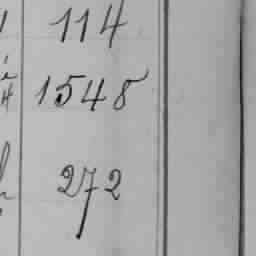 114
1548
272